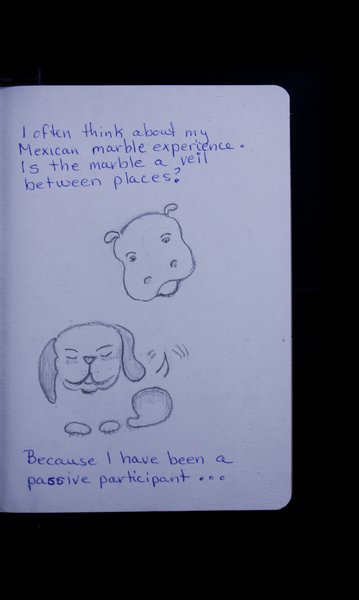 I often think about my
Mexican marble experience.
Is the marble a veil
between places?
Because I have been a
passive participant...